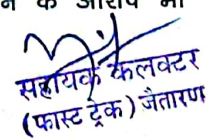 न के आरोप मा
सहायक कलक्टर
(फास्ट ट्रेक) जैतारण